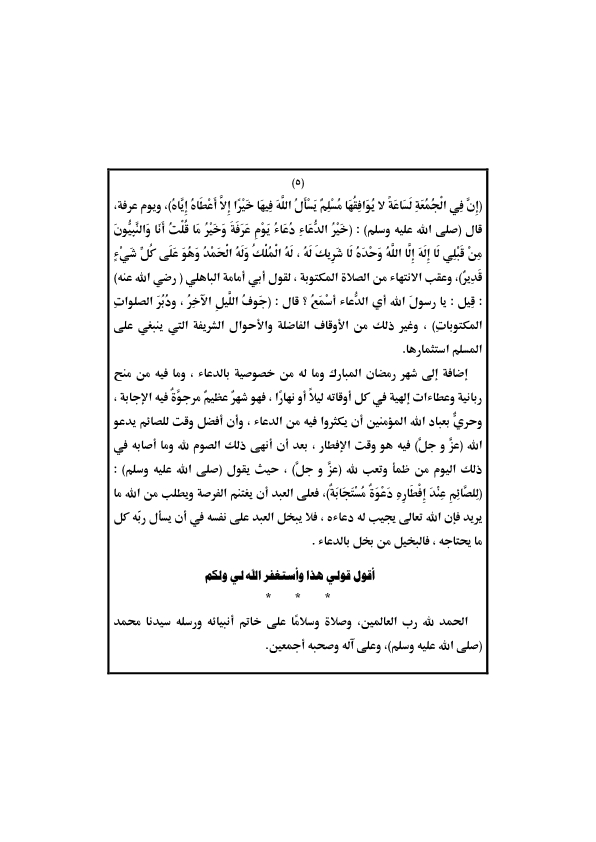 (٥)
(إِنَّ فِي الْجُمُعَةِ لَسَاعَةً لا يُوَافِقُهَا مُسْلِمٌ يَسْأَلُ اللَّهَ فِيهَا خَيْرًا إِلاَّ أَعْطَاهُ إِيَّاهُ)، ويوم عرفة،
قال (صلى الله عليه وسلم) : (خَيْرُ الدُّعَاءِ دُعَاءُ يَوْمِ عَرَفَةَ وَخَيْرُ مَا قُلْتُ أَنَا وَالنَّبِيُّونَ
مِنْ قَبْلِي لَا إِلَهَ إِلَّا اللَّهُ وَحْدَهُ لَا شَرِيكَ لَهُ ، لَهُ الْمُلْكُ وَلَهُ الْحَمْدُ وَهُوَ عَلَى كُلِّ شَيْءٍ
قَدِيرٌ)، وعقب الانتهاء من الصلاة المكتوبة ، لقول أبي أمامة الباهلي ( رضي الله عنه)
: قِيل : يا رسولَ الله أي الدُّعاء أسْمَعُ ؟ قال : (جَوفُ اللَّيل الآخِرُ ، ودُبُرَ الصلواتِ
المكتوباتِ) ، وغير ذلك من الأوقاف الفاضلة والأحوال الشريفة التي ينبغي على
المسلم استثمارها.
إضافة إلى شهر رمضان المبارك وما له من خصوصية بالدعاء ، وما فيه من منح
ربانية وعطاءات إلهية في كل أوقاته ليلاً أو نهارًا ، فهو شهرٌ عظيمٌ مرجوَّةٌ فيه الإجابة ،
وحريٌّ بعباد الله المؤمنين أن يكثروا فيه من الدعاء ، وأن أفضل وقت للصائم يدعو
الله (عزَّ و جلَّ) فيه هو وقت الإفطار ، بعد أن أنهى ذلك الصوم لله وما أصابه في
ذلك اليوم من ظمأ وتعب لله (عزَّ و جلَّ) ، حيث يقول (صلى الله عليه وسلم) :
(لِلصَّائِمِ عِنْدَ إِفْطَارِهِ دَعْوَةٌ مُسْتَجَابَةٌ)، فعلى العبد أن يغتنم الفرصة ويطلب من الله ما
يريد فإن الله تعالى يجيب له دعاءه ، فلا يبخل العبد على نفسه في أن يسأل ربّه كل
ما يحتاجه ، فالبخيل من بخل بالدعاء .
أقول قولي هذا وأستغفر الله لي ولكم
* * *
الحمد لله رب العالمين، وصلاة وسلامًا على خاتم أنبيائه ورسله سيدنا محمد
(صلى الله عليه وسلم)، وعلى آله وصحبه أجمعين.